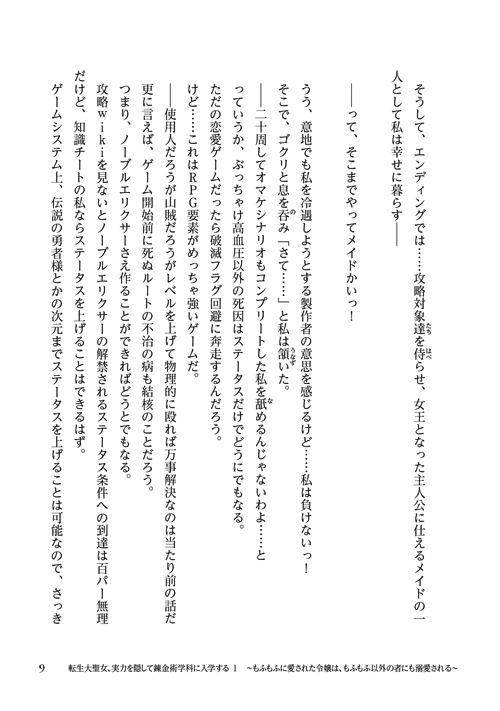 そうして、エンディングでは……攻略対象達を侍らせ、女王となった主人公に仕えるメイドの一
人として私は幸せに暮らす――
――って、そこまでやってメイドかいっ！
うう、意地でも私を冷遇しようとする製作者の意思を感じるけど……私は負けないっ！
そこで、ゴクリと息を呑み「さて……」と私は頷いた。
――二十周してオマケシナリオもコンプリートした私を舐めるんじゃないわよ……と
っていうか、ぶっちゃけ高血圧以外の死因はステータスだけでどうにでもなる。
ただの恋愛ゲームだったら破滅フラグ回避に奔走するんだろう。
けど……これはＲＰＧ要素がめっちゃ強いゲームだ。
――使用人だろうが山賊だろうがレベルを上げて物理的に殴れば万事解決なのは当たり前の話だ
更に言えば、ゲーム開始前に死ぬルートの不治の病も結核のことだろう。
つまり、ノーブルエリクサーさえ作ることができればどうとでもなる。
攻略ｗｉｋｉを見ないとノーブルエリクサーの解禁されるステータス条件への到達は百パー無理
だけど、知識チートの私ならステータスを上げることはできるはず。
ゲームシステム上、伝説の勇者様とかの次元までステータスを上げることは可能なので、さっき
9 転生大聖女、実力を隠して錬金術学科に入学する 1 ～もふもふに愛された令嬢は、もふもふ以外の者にも溺愛される～